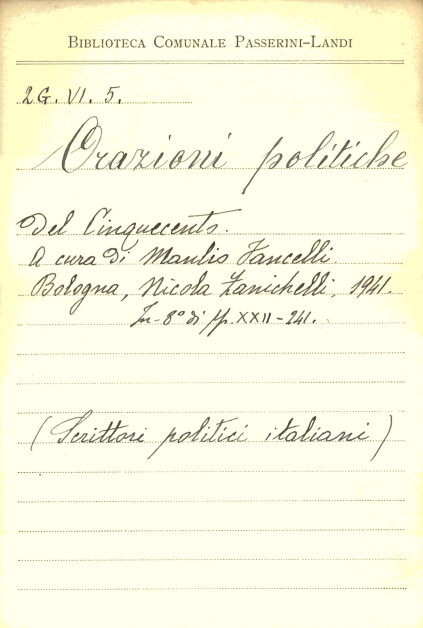 BIBLIOTECA COMUNALE PASSERINI-LANDI
2G. VI. 5.
Orazioni politiche
Del Cinquecento.
A cura di Manlio Fancelli.
Bologna, Nicola Zanichelli, 1941.
In-8° di pp. XXII-241.
(Scrittori politici italiani)